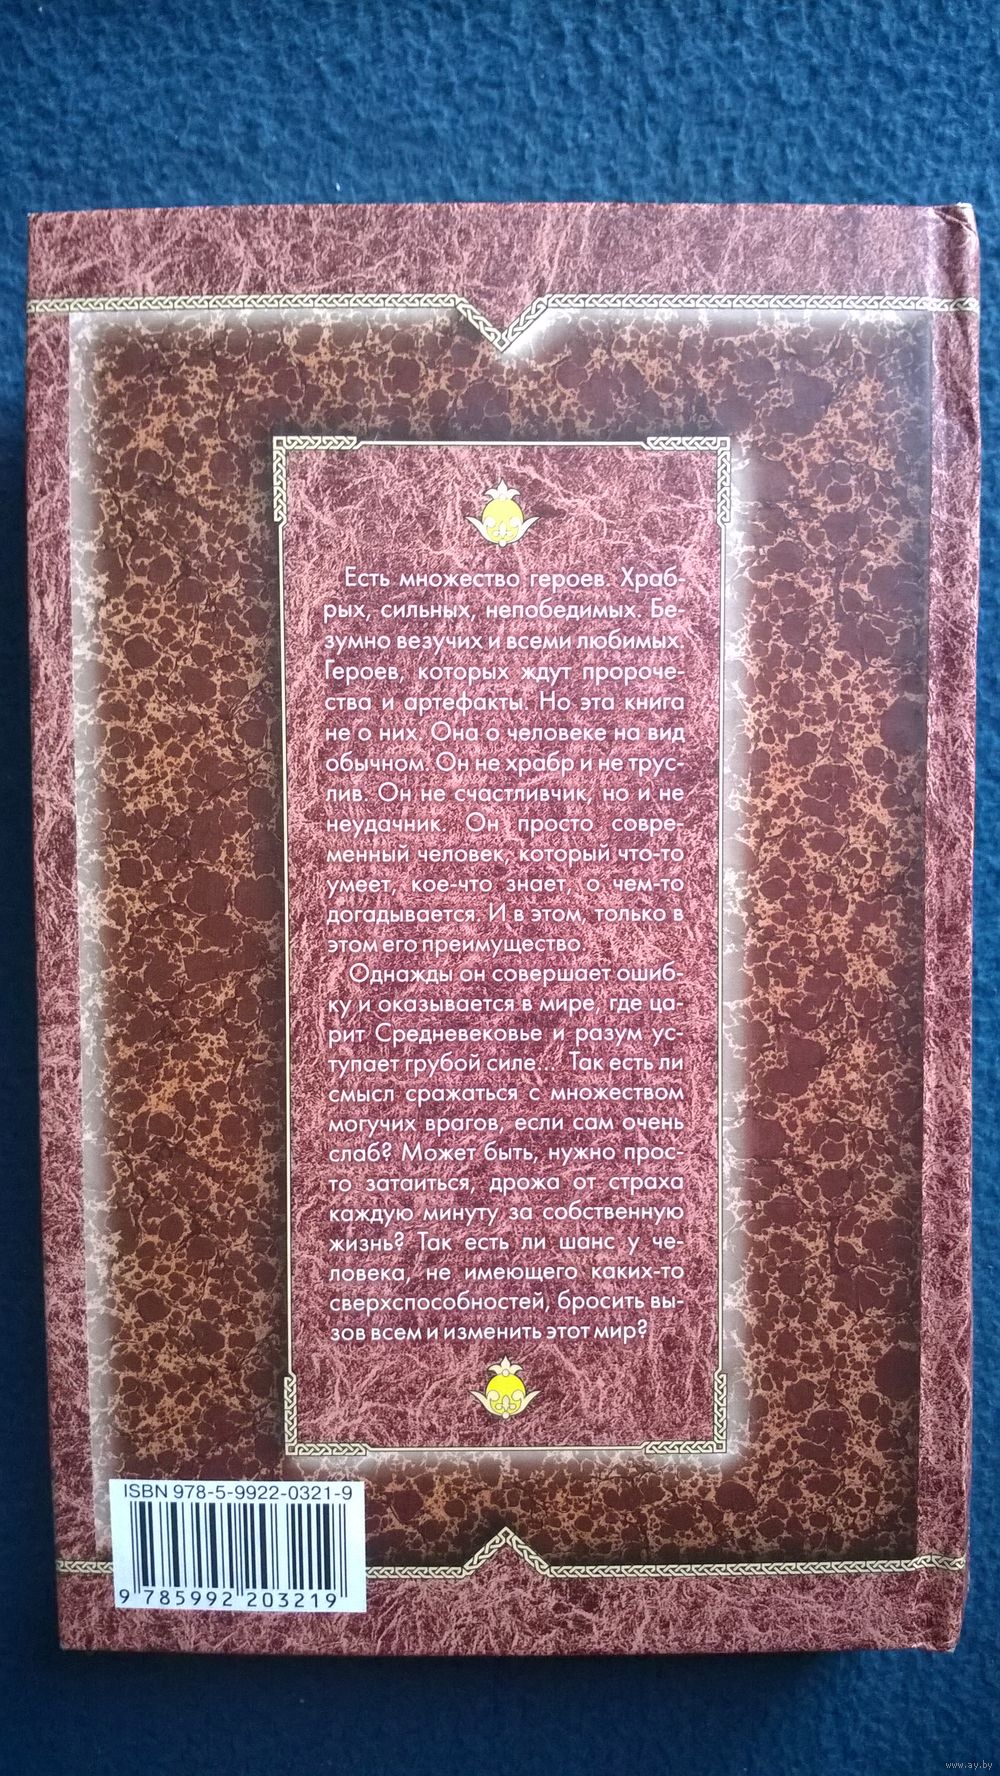 Есть множество героев. Храб-
рых, сильных, непобедимых. Бе-
зумно везучих и всеми любимых.
Героев, которых ждут пророче-
ства и артефакты. Но эта книга
не о них. Она о человеке на вид
обычном. Он не храбр и не трус-
лив. Он не счастливчик, но и не
неудачник. Он просто совре-
менный человек, который что-то
умеет, кое-что знает, о чем-то
догадывается. И в этом, только в
этом его преимущество.
Однажды он совершает ошиб-
ку и оказывается в мире, где ца-
рит Средневековье и разум ус-
тупает грубой силе... Так есть ли
смысл сражаться с множеством
могучих врагов, если сам очень
слаб? Может быть, нужно прос-
то затаиться, дрожа от страха
каждую минуту за собственную
жизнь? Так есть ли шанс у че-
ловека, не имеющего каких-то
сверхспособностей, бросить вы-
зов всем и изменить этот мир?
ISBN 978-5-9922-0321-9
9 785992 203219
www.ay.by